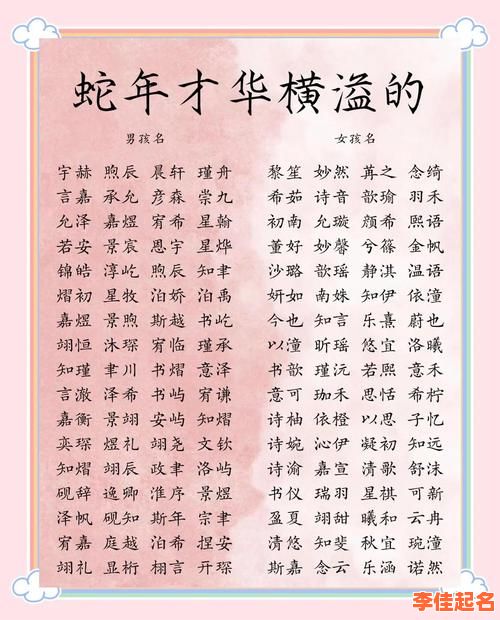 蛇年才华横溢的
男孩名 女孩名
宇赫 煦辰 晨轩 瑾舟 黎笙 妙然 苒之 念绮
言嘉 承允 彦森 崇九 希茹 诗音 歆瑜 羽禾
允泽 嘉煜 宥希 星翰 初南 允璇 颜希 熙语
若安 景宸 思宇 星烨 董好 妙馨 兮篠 金帆
锦皓 淳屹 煦辰 知聿 沙璐 歆瑶 静淇 温语
熠初 星牧 泊娇 泊禹 妍如 南姝 知伊 依潼
嘉煜 景煦 斯越 书屹 今也 知言 乐熹 蔚也
翊恒 沐琛 宥临 瑾承 以潼 昕瑶 悠宜 洛曦
知瑾 聿川 书熠 意泽 书歆 瑾沅 若熙 意禾
言澈 泽希 书屿 宥谦 意可 珈禾 思恬 希柠
嘉衡 景翊 安屿 知熠 诗柚 依橙 以思 子忆
奕琛 煜礼 翊尧 文钦 诗婉 沁伊 凝初 知远
知熠 翊辰 政聿 洛屿 诗渝 嘉宣 清歌 舒沫
砚辞 逸卿 淮序 景煜 书仪 瑞羽 星祺 可新
泽帆 砚知 斯年 宗聿 盈夏 翊甜 曦和 云冉
宥嘉 庭越 泊希 捏安 清悠 知斐 秋宜 琬潼
翊礼 显桁 栩言 开琛 斯嘉 念云 乐涵 诺然
李佳起名